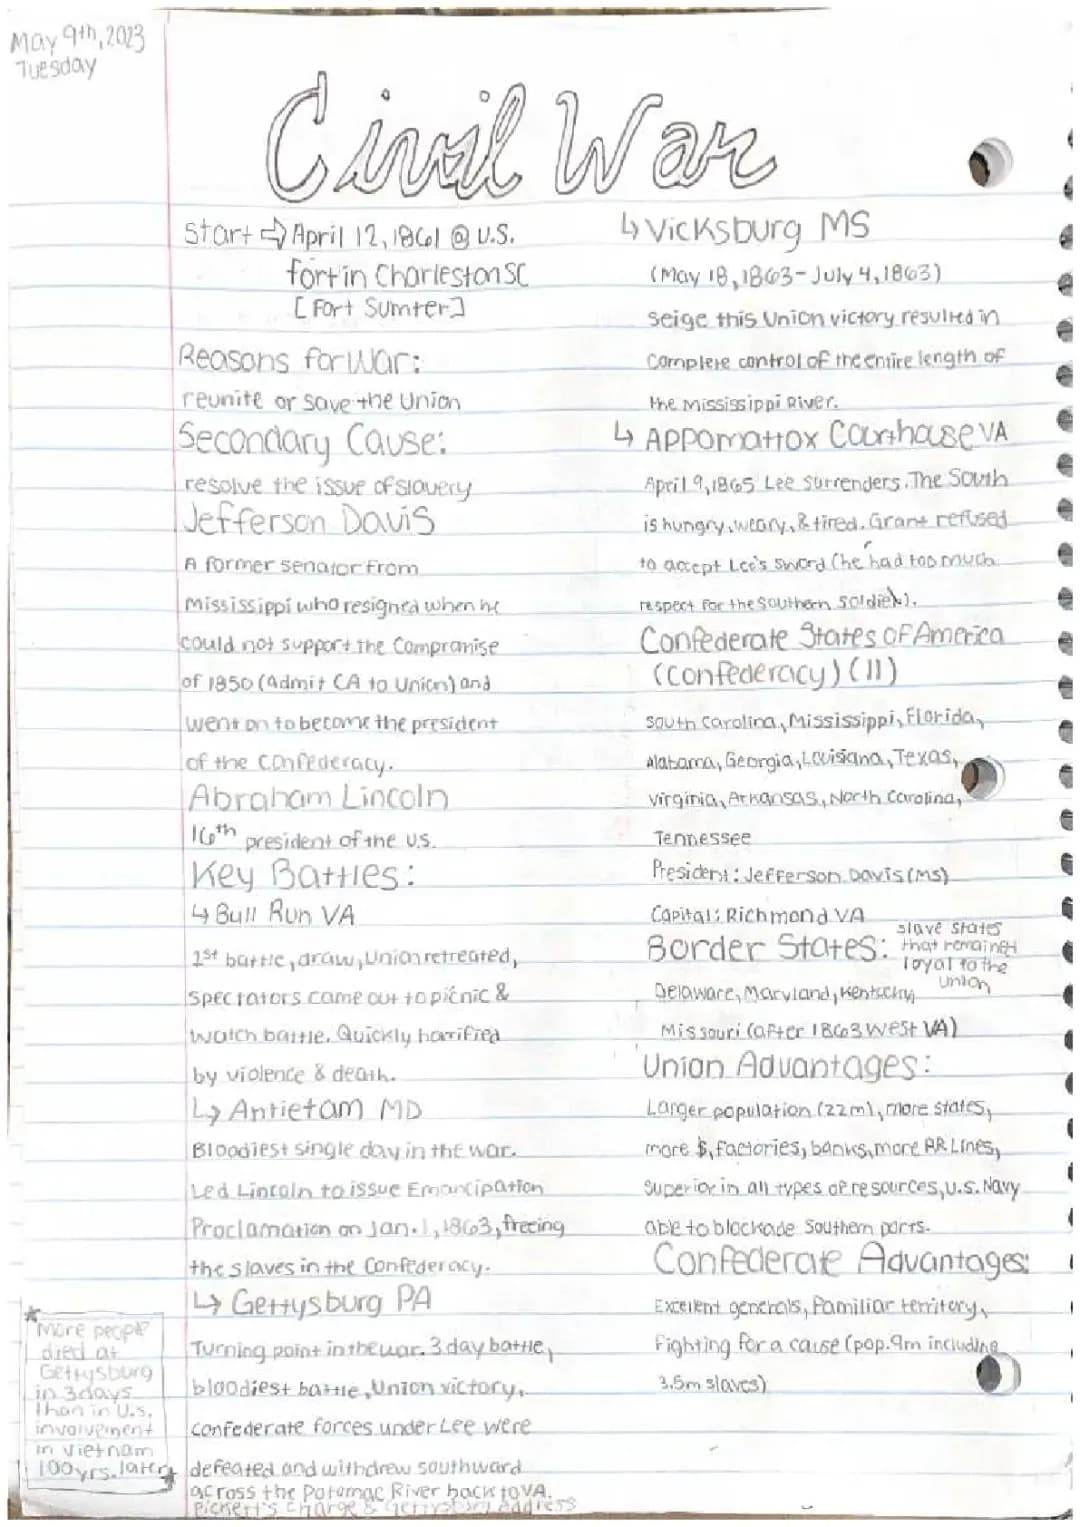 May 9th, 2023
Tuesday
Civil War
Start ⇨ April 12, 1861 @ U.S.
fort in Charleston SC
[Fort Sumter]
Reasons for War:
reunite or save the Union
Secondary Cause:
resolve the issue of slavery
Jefferson Davis
A former senator from
Mississippi who resigned when he
could not support the Compromise
of 1850 (Admit CA to Union) and
went on to become the president
of the Confederacy.
Abraham Lincoln
16th president of the U.S.
Key Battles:
↳ Bull Run VA
1st battle, draw, Union retreated,
spectators came out to picnic &
watch battle. Quickly horrified
by violence & death.
↳ Antietam MD
Bloodiest single day in the war.
Led Lincoln to issue Emancipation
Proclamation on Jan. 1, 1863, freeing
the slaves in the Confederacy.
↳ Gettysburg PA
Turning point in the war. 3 day battle,
bloodiest battle, Union victory,
confederate forces under Lee were
defeated and withdrew southward
across the Potomac River back to VA.
Pickett's Charge & Gettysburg Address
* More people
died at
Gettysburg
in 3 days
than in U.S.
involvement
in Vietnam
100 yrs. later *
↳ Vicksburg MS
(May 18, 1863 - July 4, 1863)
seige this Union victory resulted in
complete control of the entire length of
the Mississippi River.
↳ Appomattox Courthouse VA
April 9, 1865 Lee surrenders. The South
is hungry, weary, & tired. Grant refused
to accept Lee's sword (he had too much
respect for the southern soldier).
Confederate States of America
(Confederacy) (11)
South Carolina, Mississippi, Florida,
Alabama, Georgia, Louisiana, Texas,
Virginia, Arkansas, North Carolina,
Tennessee
President: Jefferson Davis (MS)
Capital: Richmond VA
Border States: slave states
that remained
loyal to the
union
Delaware, Maryland, Kentucky,
Missouri (after 1863 West VA)
Union Advantages:
Larger population (22m), more states,
more $, factories, banks, more RR Lines,
superior in all types of resources, U.S. Navy
able to blockade Southern ports.
Confederate Advantages:
Excellent generals, familiar territory,
fighting for a cause (pop. 9m including
3.5m slaves)